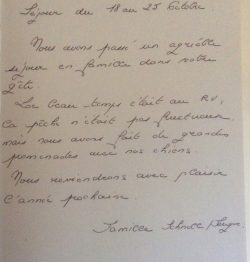 Séjour du 18 au 25 Octobre.
Nous avons passé un agréable
séjour en famille dans votre
gîte.
Le beau temps était au RV,
La pêche n'était pas fructueuse
mais nous avons fait de grandes
promenades avec nos chiens.
Nous reviendrons avec plaisir
l'année prochaine.
Famille